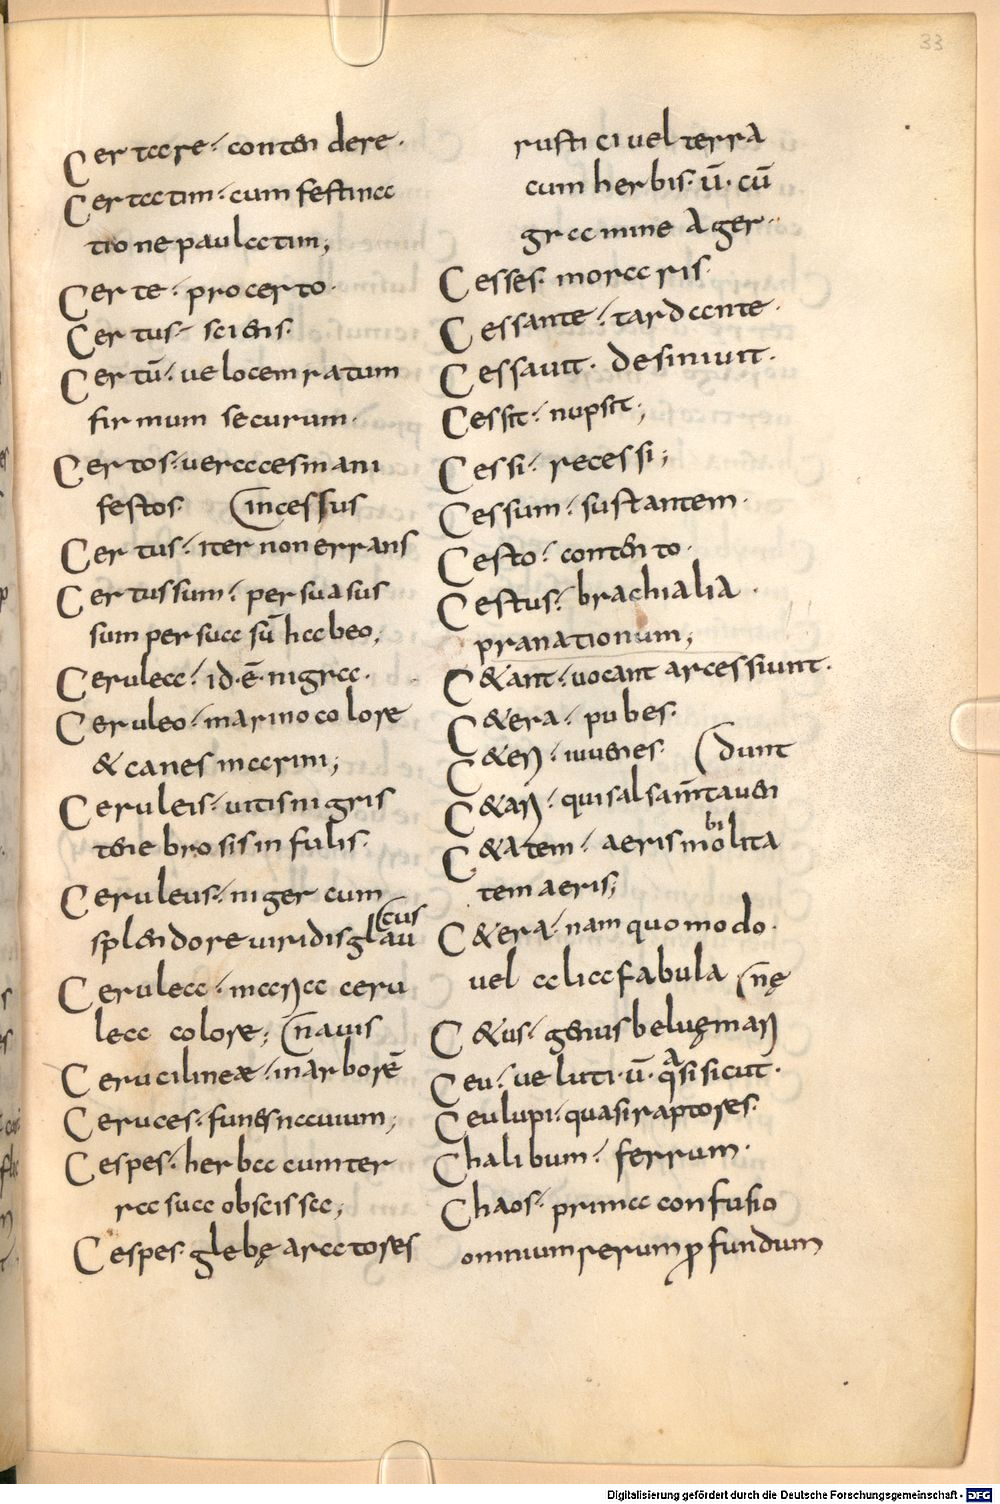 33
Certare· contendere·
Certatim· cum festina
tione paulatim;
Certe· pro certo·
Certus· sciens·
Certū· velocem ratum
firmum securum·
Certos· veraces mani
festos· incessus
Certus· iter non errans
Certus sum· persuasus
sum persuasū habeo;
Cerulea· id·ē· nigra·
Ceruleo· marino colore
& canes marini;
Ceruleis· vitis nigris
tenebrosis infulis·
Ceruleus· niger cum
cus
splendore viridis glau
Cerulea· ceru
lea colore; navis
Ceruciline æ· in arborē
Ceruces· funes navium;
Cespes· herba cum ter
ra sua obscissa;
Cespes· glebę aratores
rustici vel terra
cum herbis· ū· cū
gramine Ager·
Cesses· moraris·
Cessante· tardante·
Cessavit· desinivit·
Cessit· nupsit;
Cessi· recessi;
Cessum· sustantem·
Cesto· contento·
Cestus· brachialia·
pranationum;
C&ant· vocant arcessiunt·
C&era· pubes·
iuvenes· dunt
qui salsam̄taven
C&atem· aeris mo
bi
lita
tem aeris;
C&era· nam quomodo·
vel alia fabula nę
C&us· genus beluę mar
Ceu· veluti· ū· qasi sicut·
Ceu lupi· quasi raptores·
Chalibum· ferrum·
Chaos· prima confusio
omnium rerum ꝓfundum
Digitalisierung gefördert durch die Deutsche Forschungsgemeinschaft - DFG